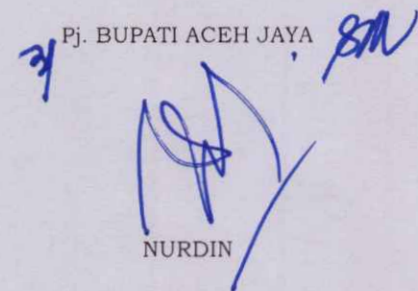 Pj. BUPATI ACEH JAYA
NURDIN